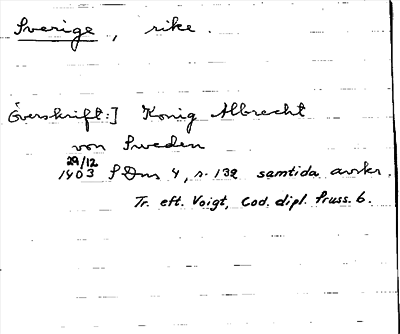 Sverige, rike.
Överskrift:] Konig Albrecht
von Sweden
29/12
1403 SDns 4, s. 132 samtida avskr.
Tr. eft. Voigt, Cod. dipl. Pruss. 6.